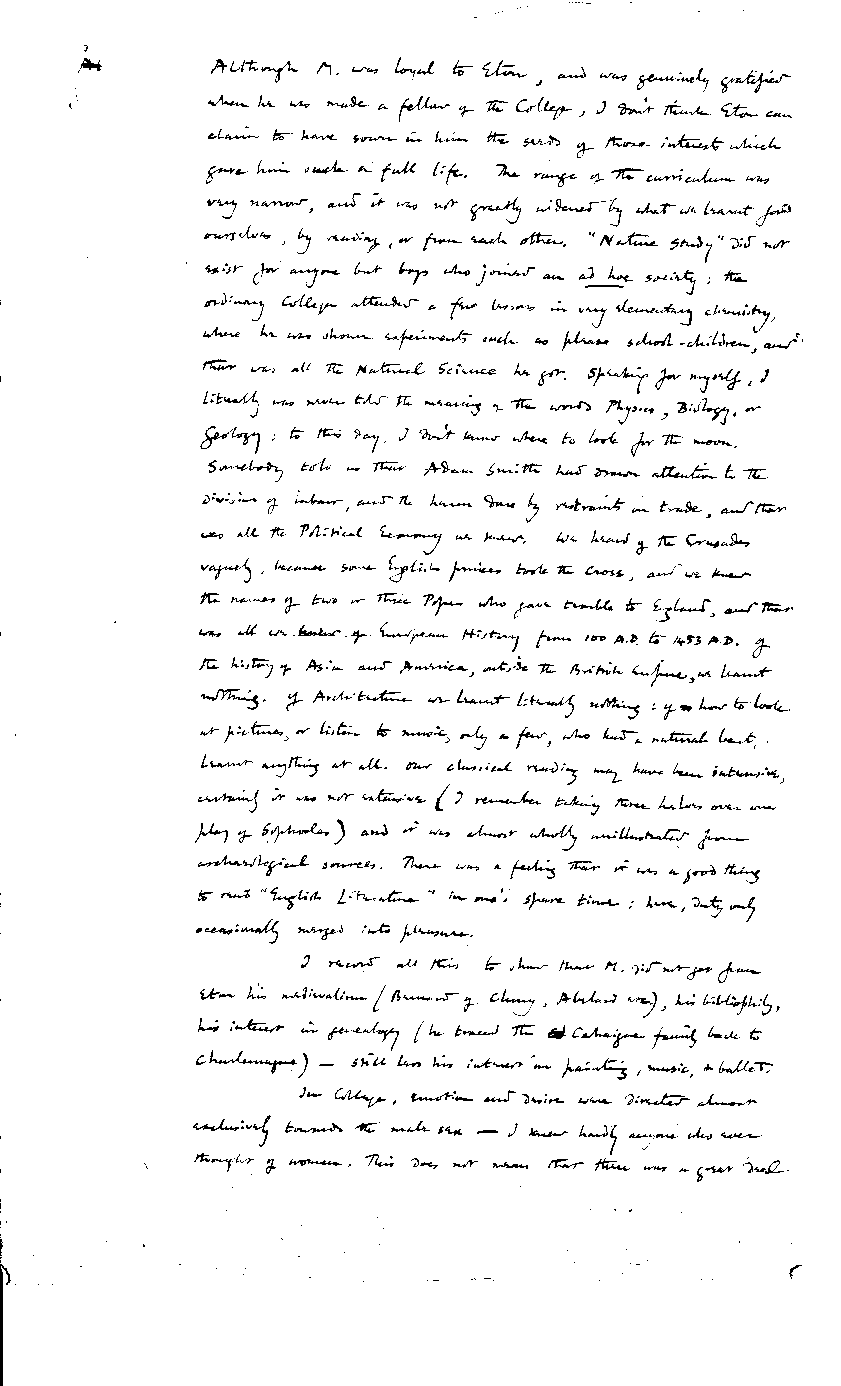 Although M. was loyal to Eton, and was genuinely gratified
when he was made a fellow of the College, I don't think Eton can
claim to have sown in him the seeds of those interest which
gave him such a full life. The range of the curriculum was
very narrow, and it was not greatly widened by what we learnt for
ourselves, by reading, or from each other. "Nature Study" did not
exist for anyone but boys who joined an ad hoc society; the
ordinary Colleger attended a few lessons in very elementary chemistry,
where he was shown experiments such as please school-children, and
that was all the Natural Science he got. Speaking for myself, I
literally was never told the meaning of the words Physics, Biology, or
Geology; to this day, I don't know where to look for the moon.
Somebody told us that Adam Smith had drawn attention to the
Division of labour, and the harm done by restraints on trade, and that
was all the Political Economy we knew. We heard of the Crusades
vaguely, because some English princes took the Cross, and we knew
the names of two or three Popes who gave trouble to England, and that
was all we of European History from 100 A.D. to 1453 A.D. Of
the history of Asia and America, outside the British Empire, we learnt
nothing. Of Architecture we learnt literally nothing: of how to look
at pictures, or listen to music, only a few, who had a natural bent,
learnt anything at all. Our classical reading may have been intensive,
certainly it was not extensive (I remember taking three halves over one
play of Sophocles) and it was almost wholly unillustrated from
archaeological sources. There was a feeling that it was a good thing
to read "English Literature" in one's spare time; here, duty only
occasionally merged into pleasure.
I record all this to show that M. did not get from
Eton his medievalism (Bernard of Cluny, Abelard etc.), his bibliophily,
his interest in genealogy (he traced the family back to
Charlemagne) — still less his interest in painting, music, or ballet.
In College, emotion and desire were directed almost
exclusively towards the male sex — I knew hardly anyone who ever
thought of women. This does not mean that there was a great deal